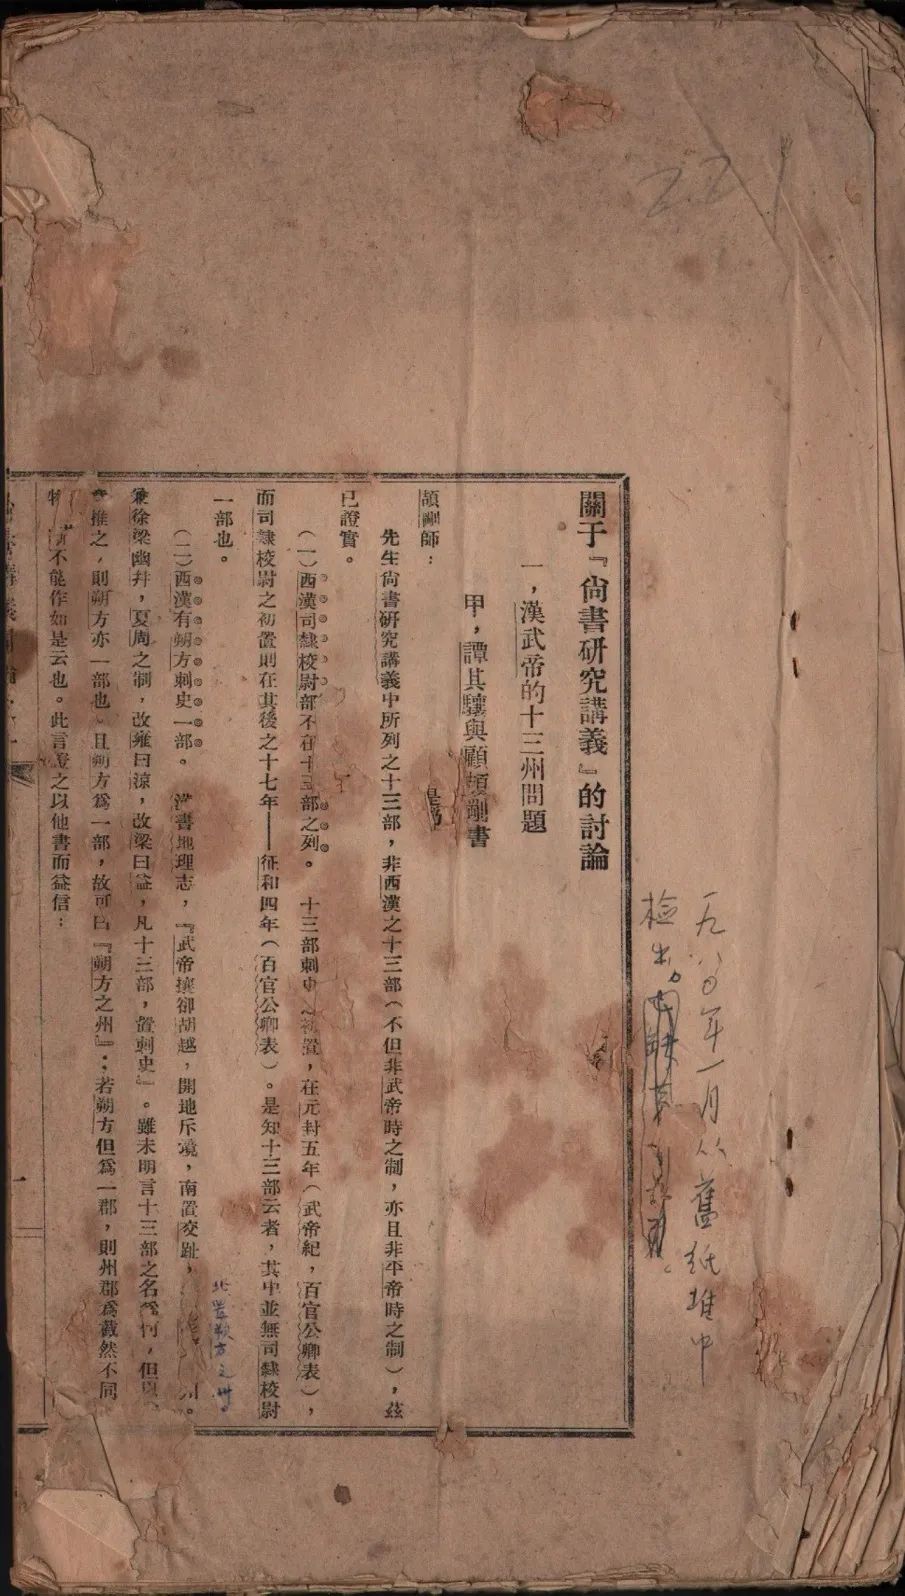 22
一九八〇年一月从舊紙堆中
检出。
關于『尙書研究講義』的討論
一，漢武帝的十三州問題
甲，譚其驤與顧頡剛書
頡剛師：
先生尙書研究講義中所列之十三部，非西漢之十三部（不但非武帝時之制，亦且非平帝時之制），茲
已證實。
（一）西漢司隸校尉部不在十三部之列。　十三部刺史之初置，在元封五年（武帝紀，百官公卿表），
而司隸校尉之初置則在其後之十七年——征和四年（百官公卿表）。是知十三部云者，其中並無司隸校尉
一部也。
（二）西漢有朔方刺史一部。　漢書地理志，『武帝攘卻胡越，開地斥境，南置交趾，
北置朔方之州。
兼徐梁幽幷，夏周之制，改雍曰涼，改梁曰益，凡十三部，置刺史』。雖未明言十三部之名爲何，但
推之，則朔方亦一部也。且朔方爲一部，故可曰『朔方之州』；若朔方但爲一郡，則州郡爲截然不同
不能作如是云也。此言證之以他書而益信：
一